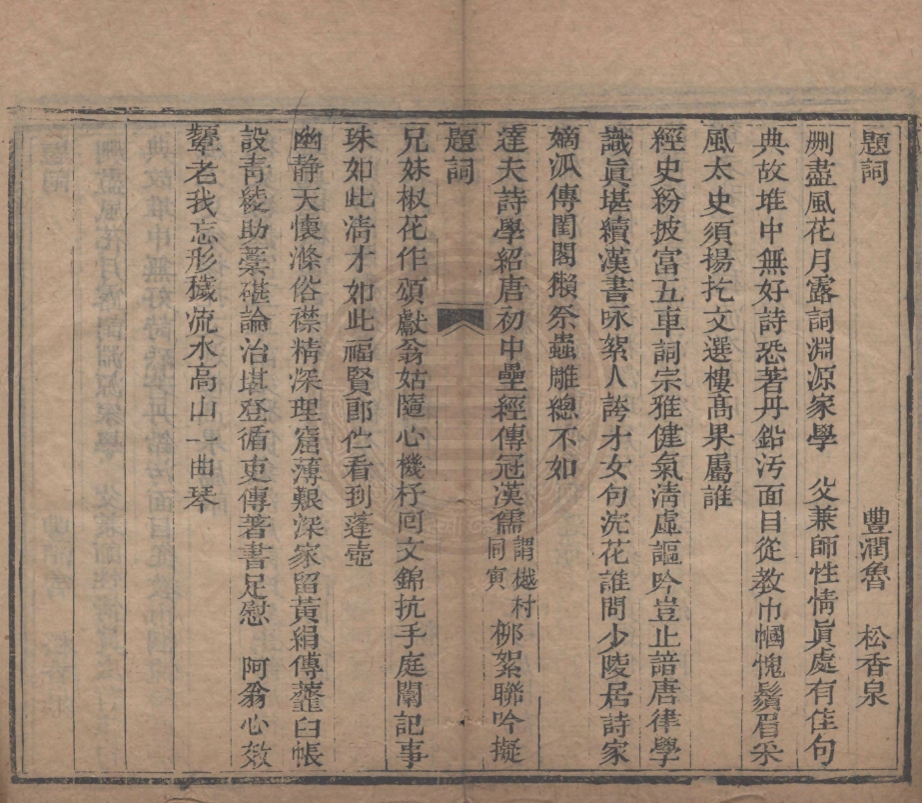 題詞 豐潤魯 松香泉
刪盡風花月露詞淵源家學 父兼師性情眞處有佳句
典故堆中無好詩恐著丹鉛汚面目從教巾幗愧鬚眉采
風太史須揚扢文選樓高果屬誰
經史紛披富五車詞宗雅健氣淸虛謳吟豈止諳唐律學
識眞堪續漢書咏絮人誇才女句浣花誰問少陵居詩家
嫡派傳閨閣獺祭蟲雕總不如
達夫詩學紹唐初中壘經傳冠漢儒謂樾村同寅柳絮聯吟擬
兄妹椒花作頌獻翁姑隨心機杼回文錦抗手庭闈記事
珠如此淸才如此福賢郎伫看到蓬壺
幽靜天懷滌俗襟精深理窟薄艱深家留黃絹傳虀臼帳
設靑綾助藁砧論治堪登循吏傳著書足慰 阿翁心效
顰老我忘形穢流水高山一曲琴
題詞